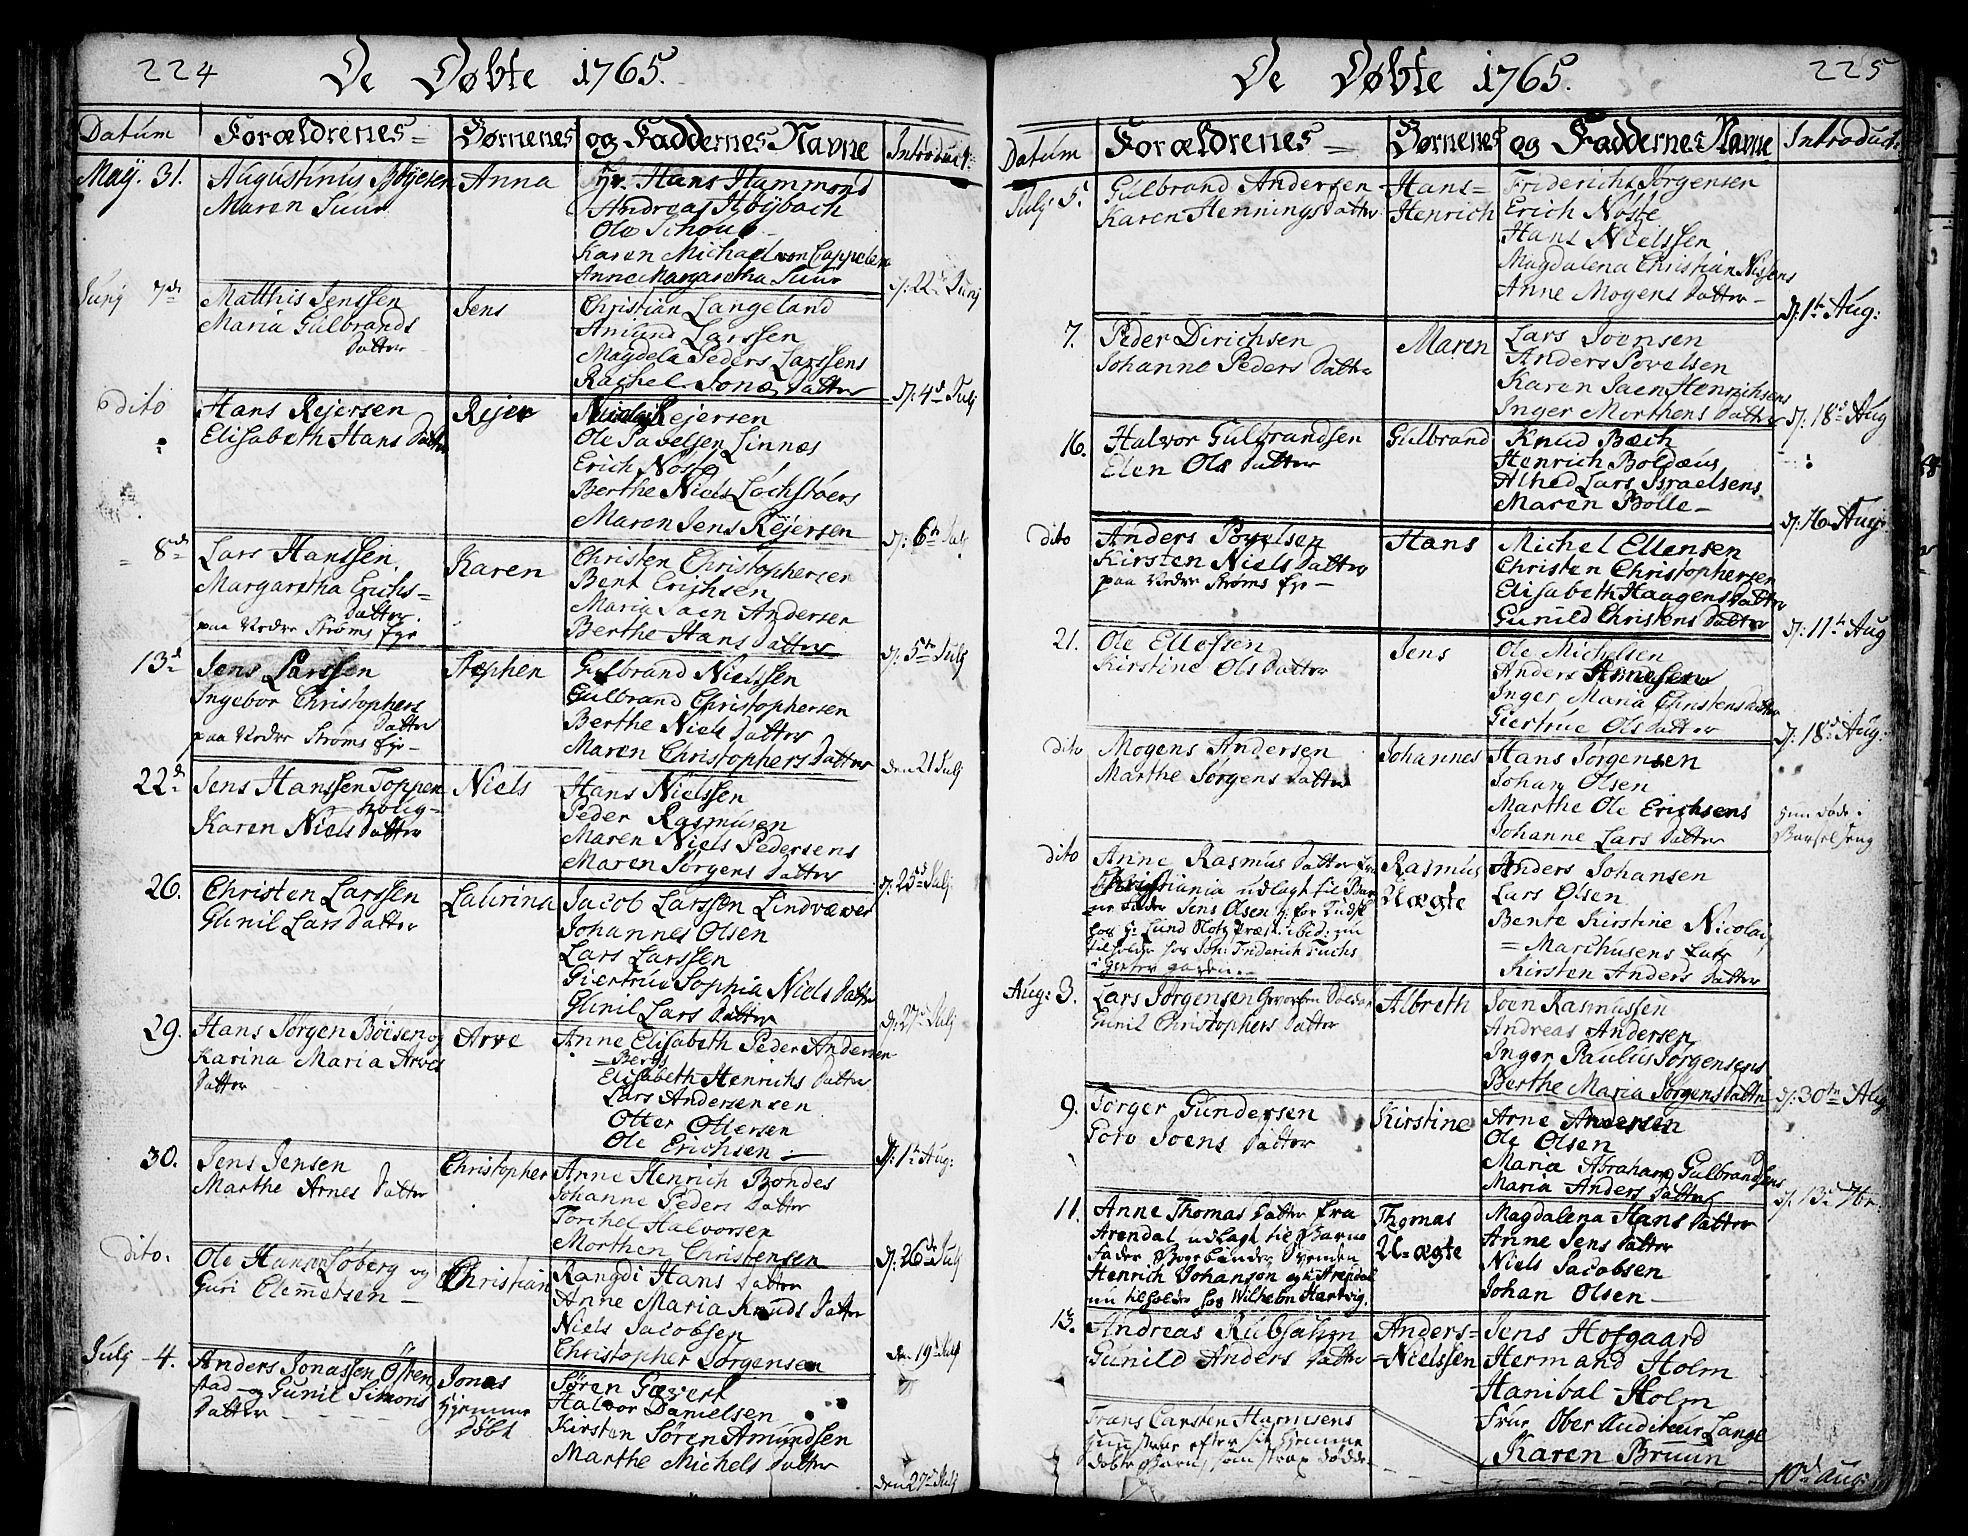 224 De Døbte 1765.
Datum Forældrenes= Børnenes og Faddernes Navne Introduct:
Maij. 31. Augustinus Bøyesen Anna Hr. Hans Hammond
Maren Suur Andreas Høybach
Ole Schou
Karen Michael von Cappelen
Anne Margaretha Suur d: 22de Junj
Junij 7de Matthis Jenssen Jens Christian Langeland
Maria Gulbrands Amund Larssen
Datter Magdela Peders Larssens
Rachel Jonæ Datter d: 4de Julj
dito Hans Rejersen Rejer Rejersen
Elisabeth Hans Datter Ole Pavelsen Linnæs
Erich Nøste
Berthe Niels Løchstøers
Maren Jens Rejersen d: 6te Julj
8de Lars Hanssen. Karen Christen Christophersen
Margaretha Erichs= Bent Erichsen
Datter. Maria Saen Andersen
paa Nedre Strøms Eye Berthe Hans Datter d: 5te Julj
13de Jens Larssen Stephen Gulbrand Nielssen
Ingebor Christophers Gulbrand Christophersen
Datter Berthe Niels Datter
paa Nedre Strøms Eje- Maren Christophers Datter den 21 Julj
22de Jens Hanssen Toppen Niels Hans Nielssen
Holig- Peder Rasmusen
Karen Niels Datter Maren Niels Pedersens
Maren Jørgens Datter d: 25de Julj
26. Christen Larssen Laurina Jacob Larssen Lindværer
Gunil Lars Datter Johannes Olsen
Lars Larssen
Giertrue Sophia Niels Datter
Gunil Lars Datter d: 27de Julj
29. Hans Jørgen Bøisen og Arve Anne Elisabeth Peder Andersen
Karina Maria Arves =Bergs
Datter Elisabeth Henrichs Datter
Lars Andersensen
Otter Ottersen
Ole Erichsen d: 1te Aug:
30. Jens Jensen Christopher Anne Henrich Bondes
Marthe Arnes Datter Johanne Peders Datter
Torchel Halvorsen
Morthen Christensen d: 26de Julj
dito. Ole Hansen Løberg og Christian Rangdi Hans Datter
Guri Clemetsen - Anne Maria Knuds Datter
Niels Jacobsen
Christopher Jørgensen den 19de Julj
Julj 4. Anders Jonassen Øfren Jonas Søren Gævert
stad og Gunil Simons Hjemme Halvor Danielsen
Datter døbt Kirsten Søren Amundsen
Marthe Michels Datter den 27de Julj
De Døbte 1765. 225
Datum Forældrenes = Børnenes og Faddernes Navne Introduct:
Julj 5. Gulbrand Andersen Hans= Friderichs Jørgensen
Karen Hennings Datter Henrich Erich Nøste
Hans Nielssen
Magdalena Christian Nissens
Anne Mogens Datter - d: 1te Aug:
7. Peder Dirichsen Maren Lars Joensen
Johanne Peders Datter Anders Povelsen
Karen Saen Henrichsens
Inger Morthens Datter d: 18de Aug
16. Halvor Gulbrandsen Gulbrand Knud Bæch
Elen Ols Datter Henrich Boldæus
Alhed Lars Israelsens
Maren Bolle - d: 16 Aug:
dito Anders Povelsen Hans Michel Ellensen
Kirsten Niels Datter Christen Christophersen
paa Nedre Strøms Eje - Elisabeth Haagens Datter
Gunild Christens Datter d: 11te Aug
21. Ole Ellefsen Jens Ole Michelsen
Kirstine Ols Datter Anders Arnesen
Inger Maria Christens Datter
Giertrue Ols Datter d: 18de Aug:
dito Mogens Andersen Johannes Hans Jørgensen
Marthe Jørgens Datter Johan Olsen
Marthe Ole Erichsens Hun døde i
Johanne Lars Datter Barsel seng
dito Anne Rasmus Datter fra Rasmus Anders Johansen
Christiania udlagt til Bar Uægte Lars Olsen
ne Fader Jens Olsen Bente Kirstine Nicolai
= Marchusens
Kirsten Anders Datter
Aug: 3. Lars Jørgensen Albreth Joen Rasmussen
Gunil Christophers Datter Andreas Andersen
Inger Paulus Jørgensens
Berthe Maria Jørgens Datter d: 30te Aug
9. Torger Gundersen Kirstine Arne Andersen
Goro Joens Datter Ole Olsen
Maria Abraham Gulbrandsens
Maria Anders Datter d: 13de 7br.
11. Anne Thomas Datter fra Thomas Magdalena Hans Datter
Arendal udlagt til Barne Uægte Anne Jens Datter
Fader Bogbinder Svenden Niels Jacobsen
Henrich Johanson Johan Olsen -
nu tilholde hos Wilhelm Hartvig.
13. Andreas Rubsahm Anders= Jens Hofgaard
Gunild Anders Datter -Nielssen Hermand Holm
Hanibal Holm
Frans Carsten Harmsens Frue Ober Auditeur Lange
Hustrue efter sit Hjemme Karen Bruun
døbte Barn, som strax døde 10de Aug: